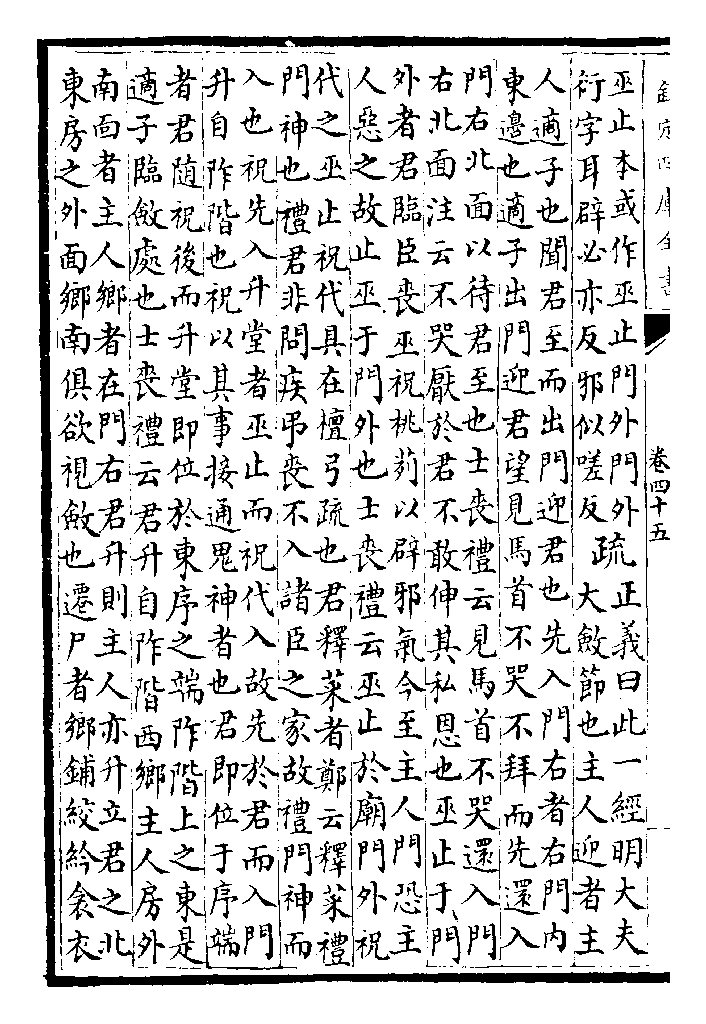 欽定四庫全書
卷四十五
巫止本或作巫止門外門外
衍字耳辟必亦反邪似嗟反
疏
正義曰此一經明大夫
大斂節也主人迎者主
人適子也聞君至而出門迎君也先入門右者右門内
東邊也適子出門迎君望見馬首不哭不拜而先還入
門右北面以待君至也士喪禮云見馬首不哭還入門
右北面注云不哭厭於君不敢伸其私恩也巫止于門
外者君臨臣喪巫祝桃茢以辟邪氣今至主人門恐主
人惡之故止巫于門外也士喪禮云巫止於廟門外祝
代之巫止祝代具在檀弓疏也君釋菜者鄭云釋菜禮
門神也禮君非問疾弔喪不入諸臣之家故禮門神而
入也祝先入升堂者巫止而祝代入故先於君而入門
升自阼階也祝以其事接通鬼神者也君即位于序端
者君隨祝後而升堂即位於東序之端阼階上之東是
適子臨斂處也士喪禮云君升自阼階西鄉主人房外
南面者主人鄉者在門右君升則主人亦升立君之北
東房之外面鄉南俱欲視斂也遷尸者鄉鋪絞紟衾衣